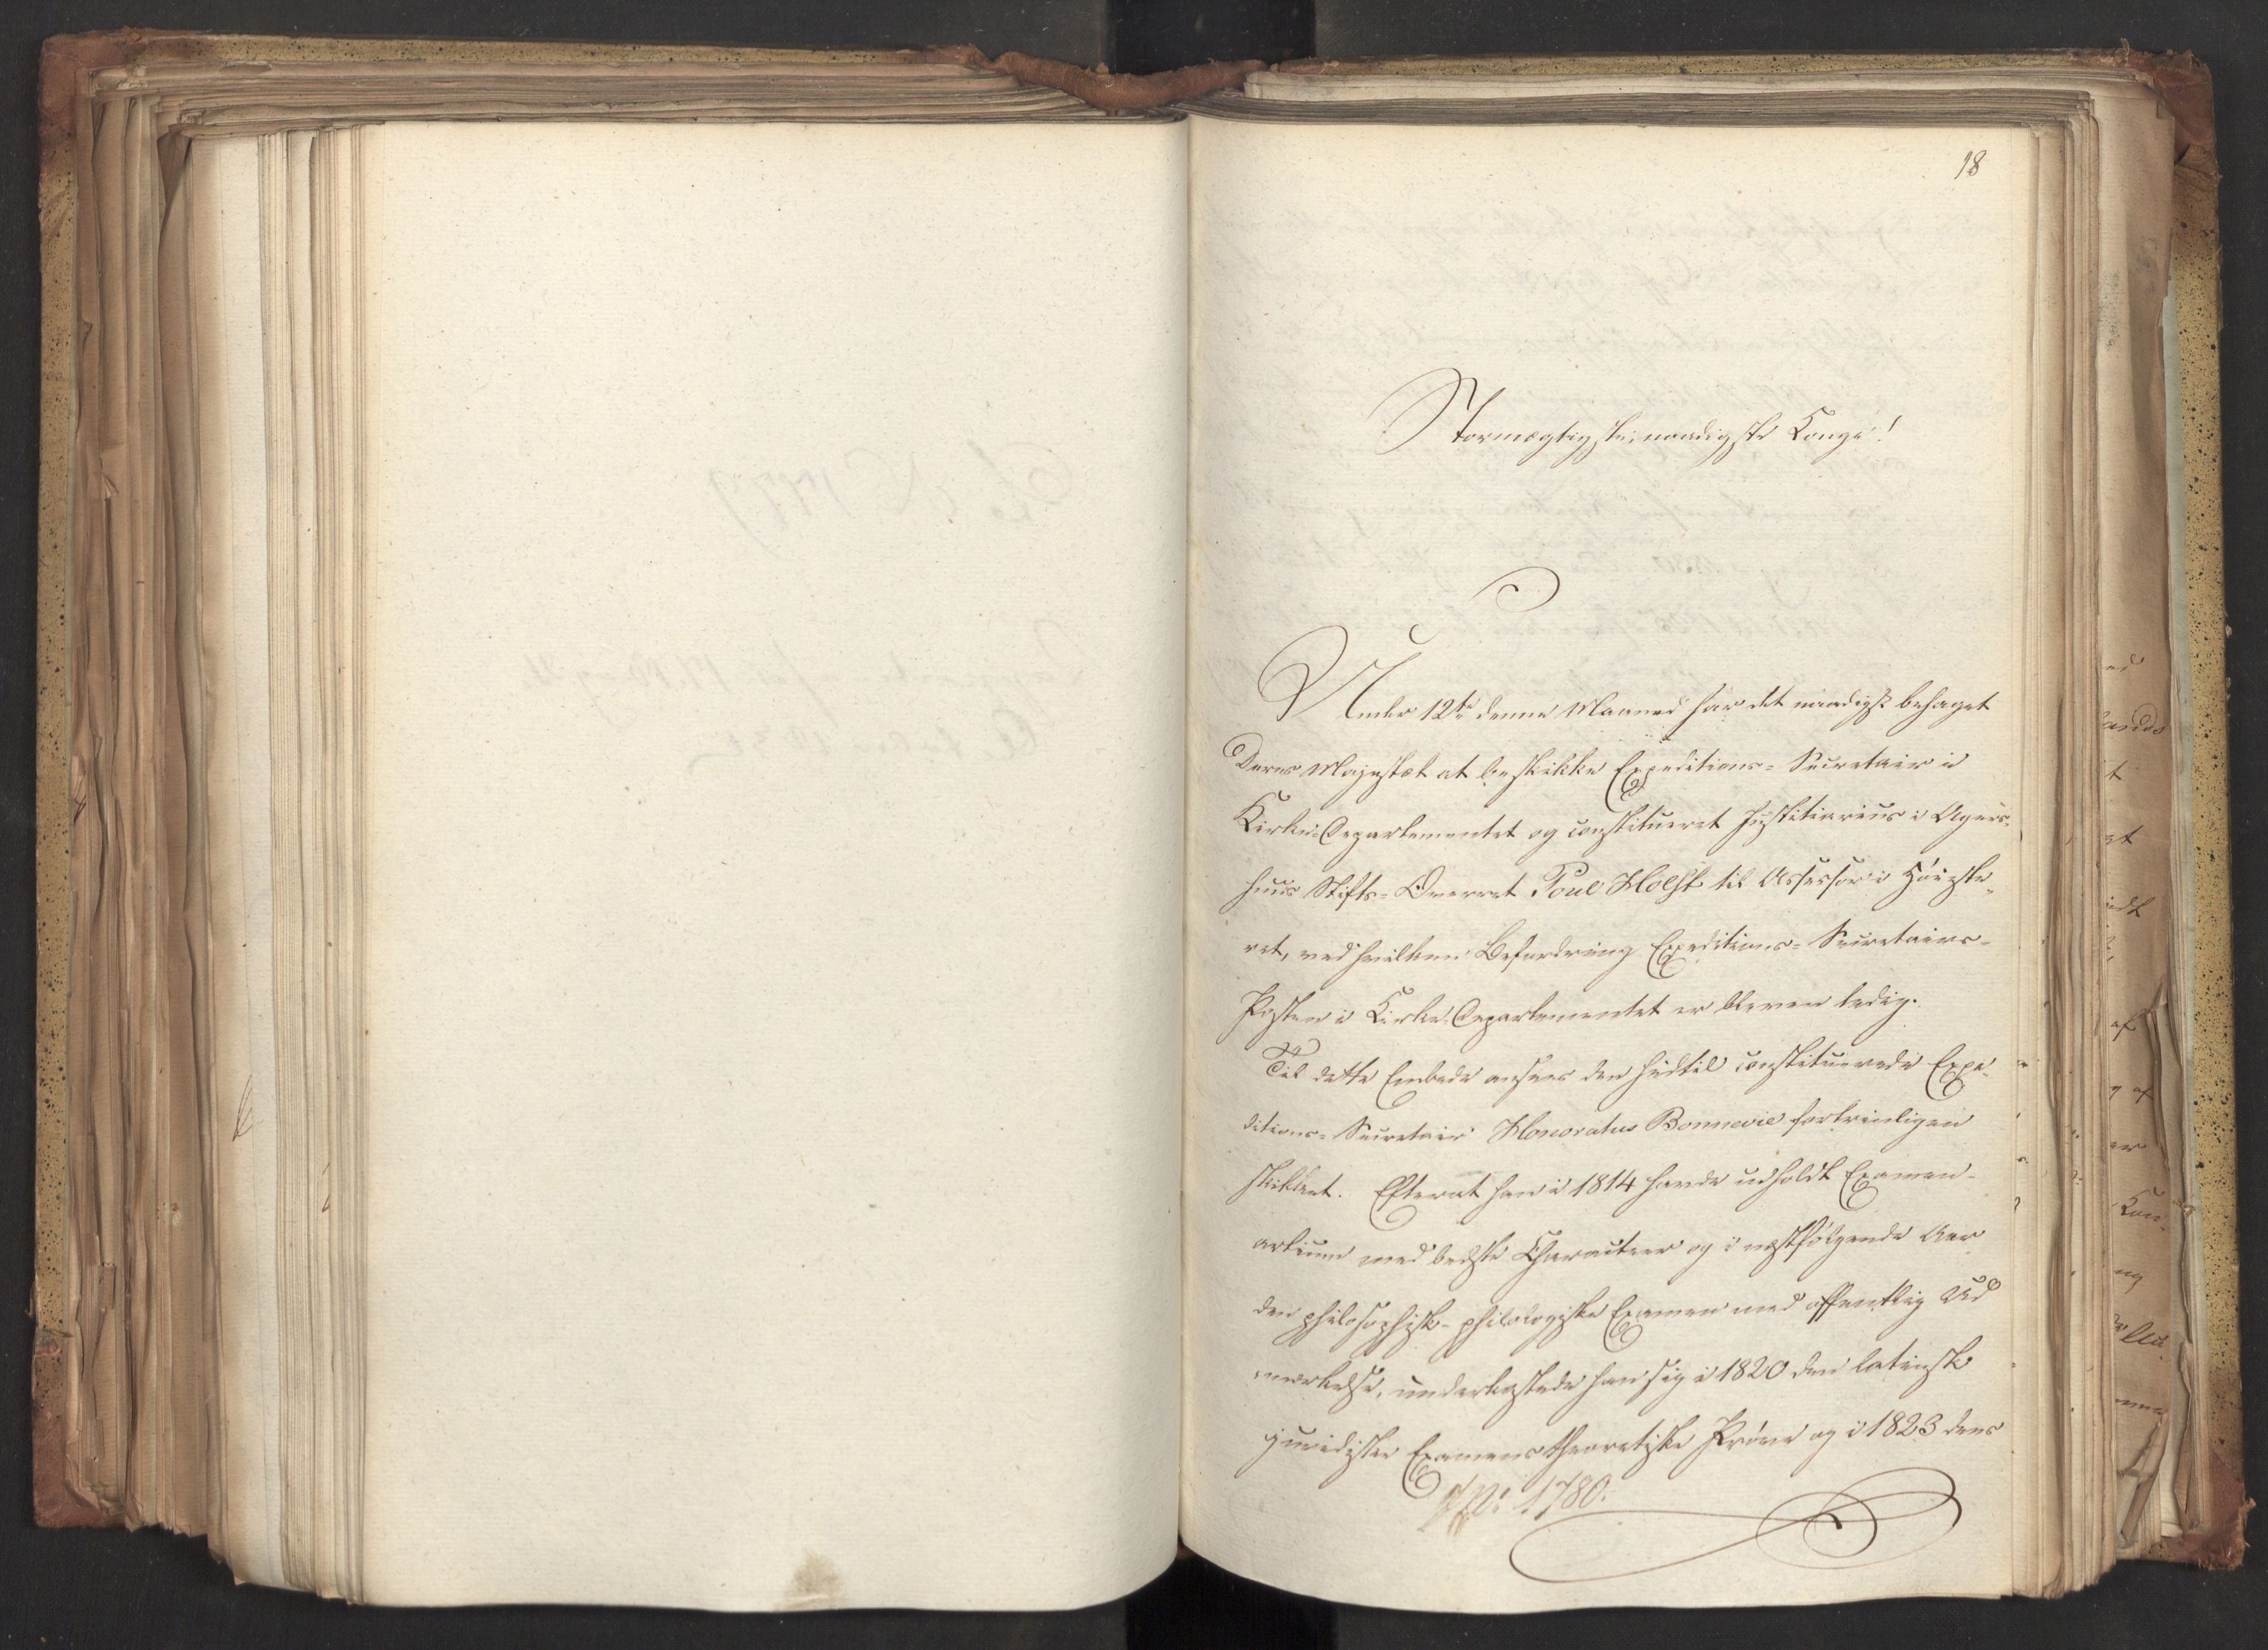 18
Stormægtigste, naadigste Konge!
Under 12te denne Maaned har det naadigst behaget
Deres Majestæt at beskikke Expeditions-Secretair i
Kirke-Departementet og constitueret Justitiarius i Agers-
huus Stifts-Overret Poul Holst til Assessor i Høieste-
ret, ved hvilken Befordring Expeditions-Secretairs-
Posten i Kirke-Departementet er bleven ledig.
Til dette Embede ansees den hidtil constituerede Expe-
ditions-Secretair Honoratus Bonnevie fortrinligen
skikket. Efterat han i 1814 havde udholdt Examen-
artium med bedste Characteer og i næstfølgende Aar
den philosophisk-philologiske Examen med offentlig Ud
mærkelse, underkastede han sig i 1820 den latinsk
juridiske Examens theoretiske Prøve og i 1823 dens
1780.